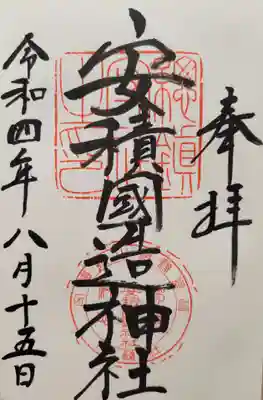 奉拝
安積國造神社
令和四年八月十五日